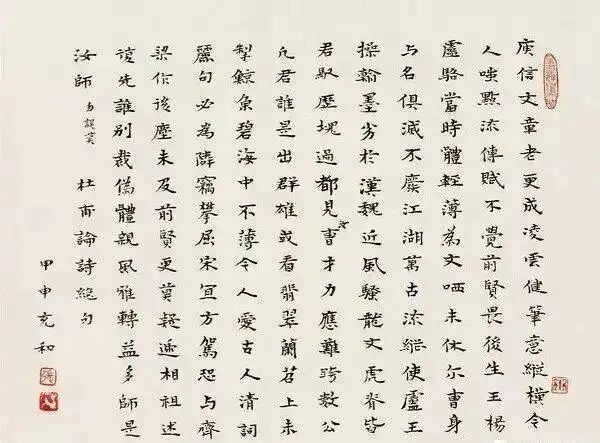 庾信文章老更成凌雲健筆意縱橫今
人嗤點流傳賦不覺前賢畏後生王楊
盧駱當時體輕薄為文哂未休尔曹身
与名俱滅不廢江湖萬古流縱使盧王
操翰墨劣於漢魏近風騷龍文虎脊皆
君馭歷塊過都見曹才力應難跨數公
凡君誰是出群雄或看翡翠蘭苕上未
掣鯨魚碧海中不薄今人愛古人清詞
麗句必為隣竊攀屈宋宜方駕恐与齊
梁作後塵未及前賢更莫疑遞相祖述
復先誰別裁偽體親風雅轉益多師是
汝師 杜甫論詩絕句
甲申充和